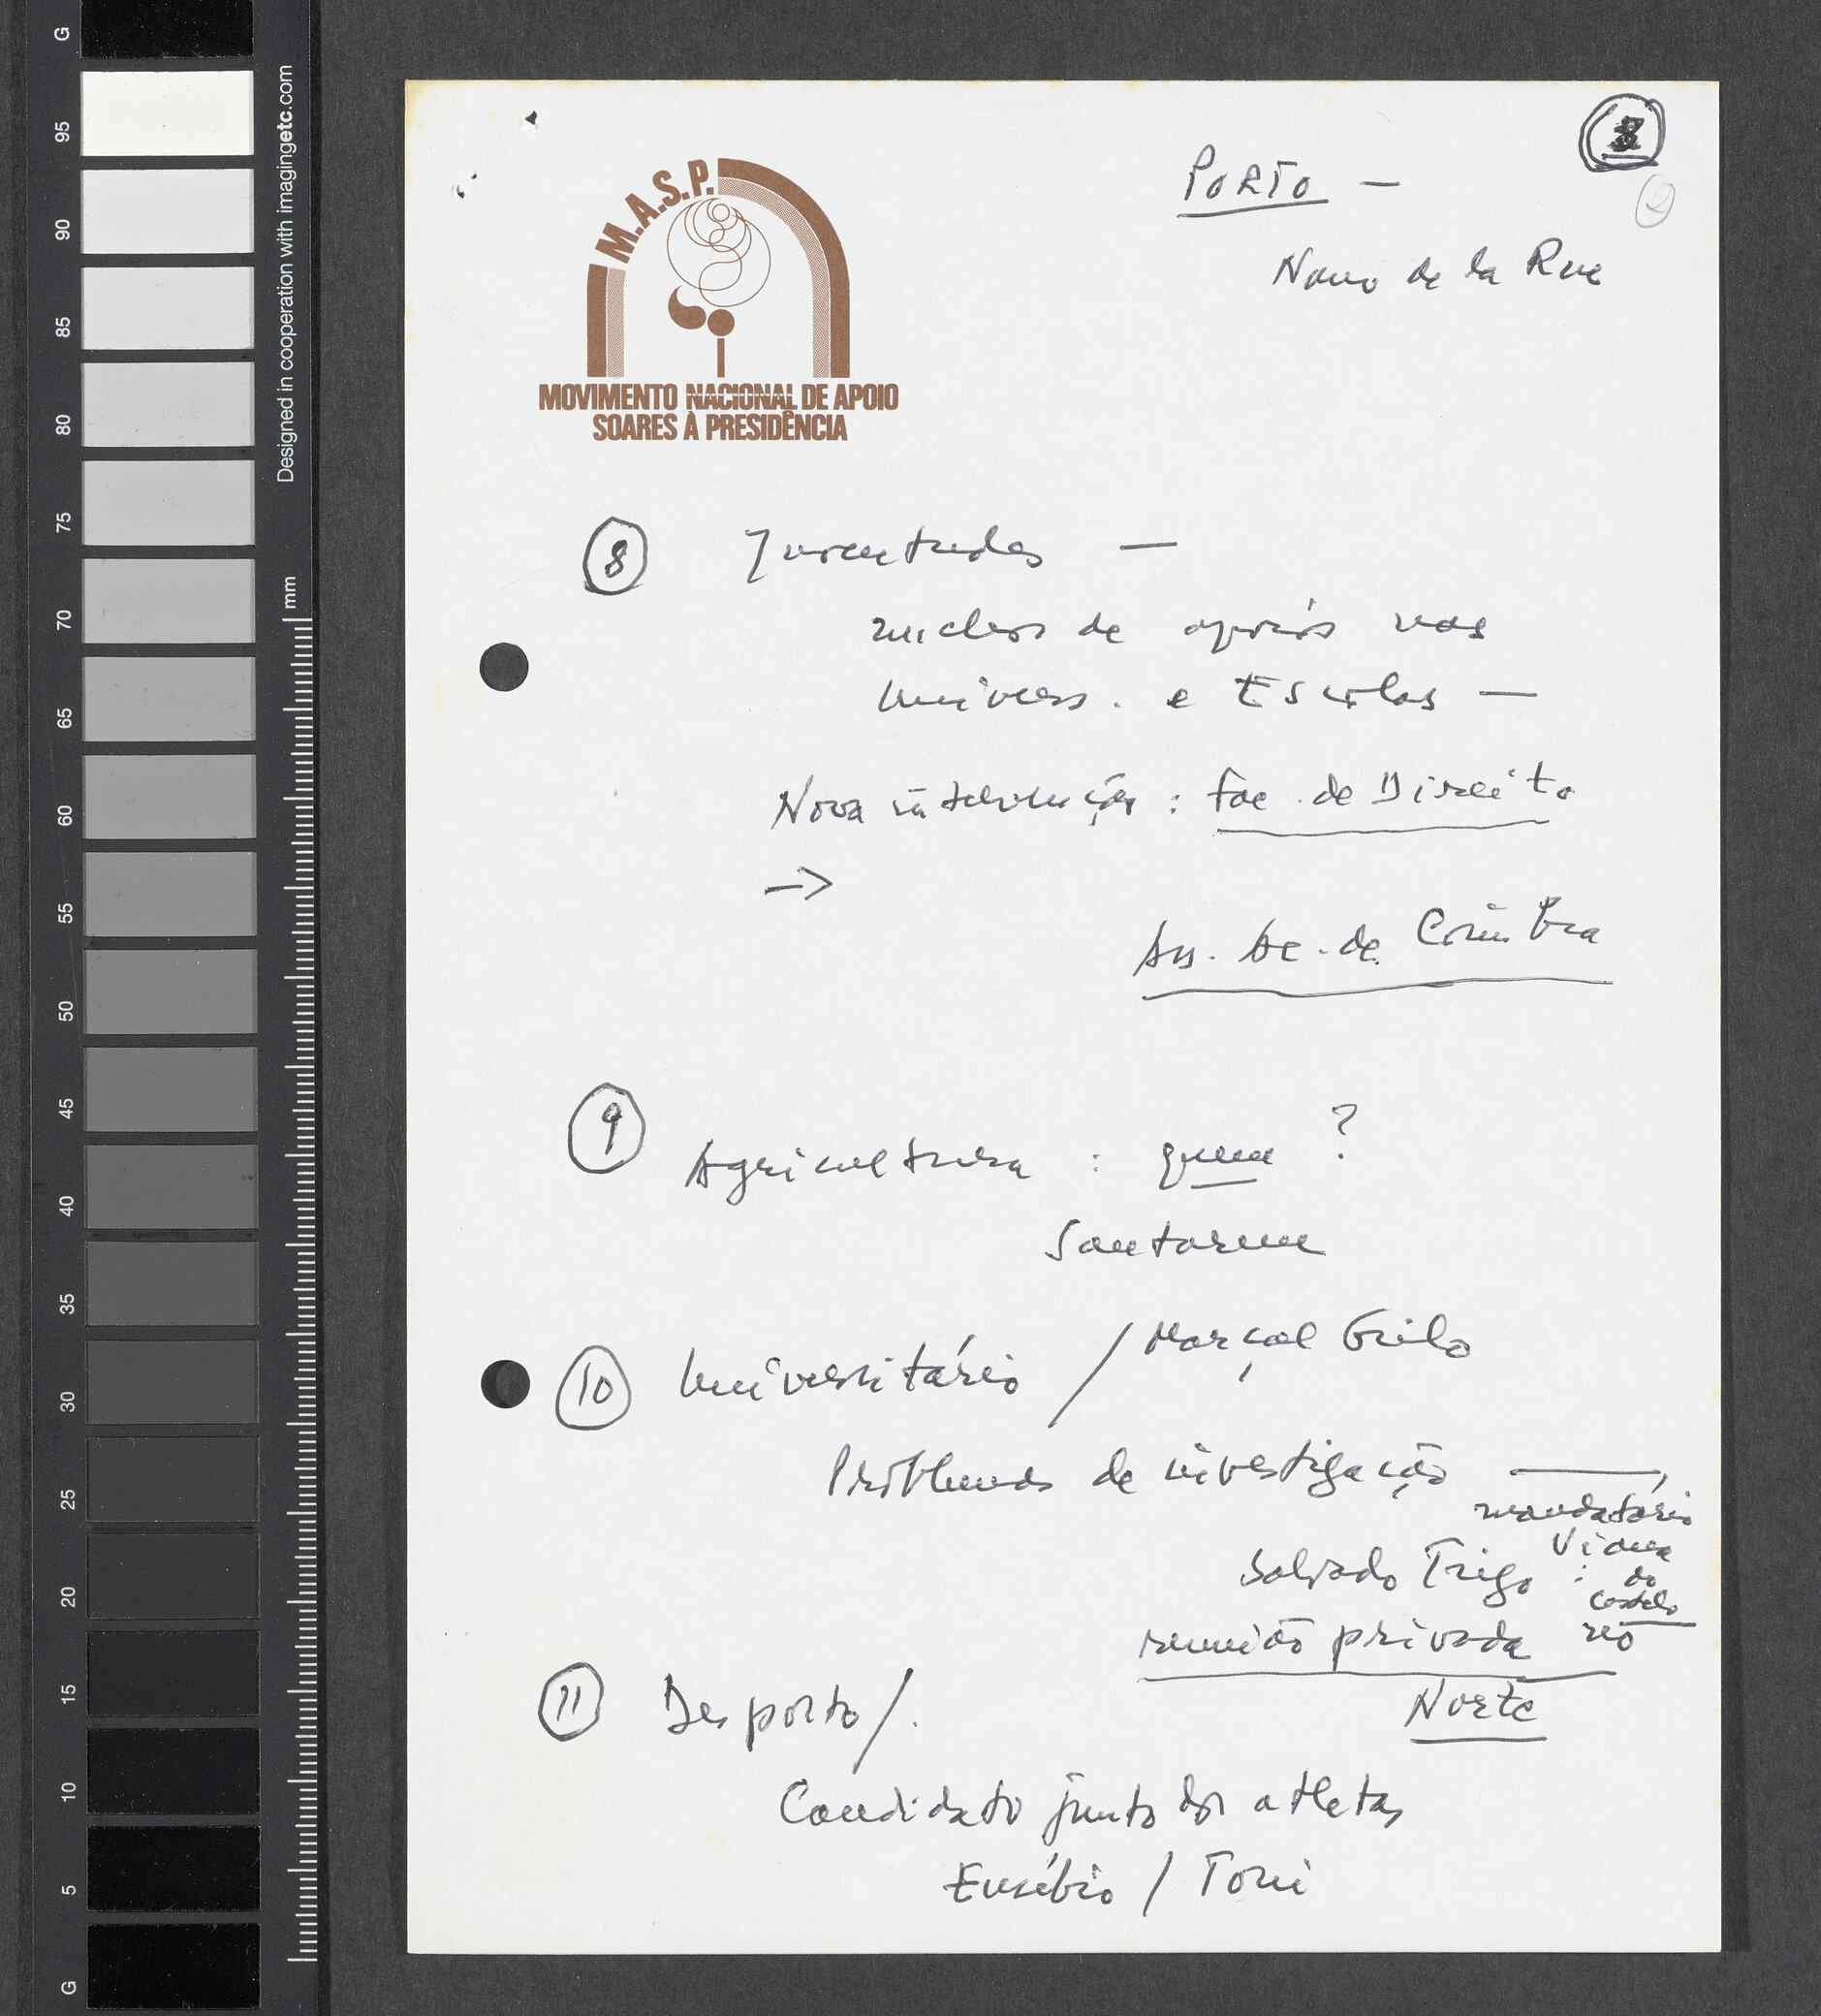 G
95
90
85
80
75
70
65
60
55
50
45
40
35
30
25
20
15
10
5
G
Designed in cooperation with imagingetc.com
mm
3
2
PORTO —
Nono de la Rue
M.A.S.P.
MOVIMENTO NACIONAL DE APOIO
SOARES À PRESIDÊNCIA
8 Juventudes —
nucleos de apoios nas
Univers. e Escolas —
Nova intervenção : Fac. de Direito
→
Ass. Ac. de Coimbra
9 Agricultura : quem ?
Santarem
10 Universitário / Marçal Grilo
Problemas de investigação —
mandatário
Viana
do
Castelo
Salvado Trigo :
reunião privada no
Norte
11 Desporto /.
Candidato junto dos atletas
Eusébio / Toni